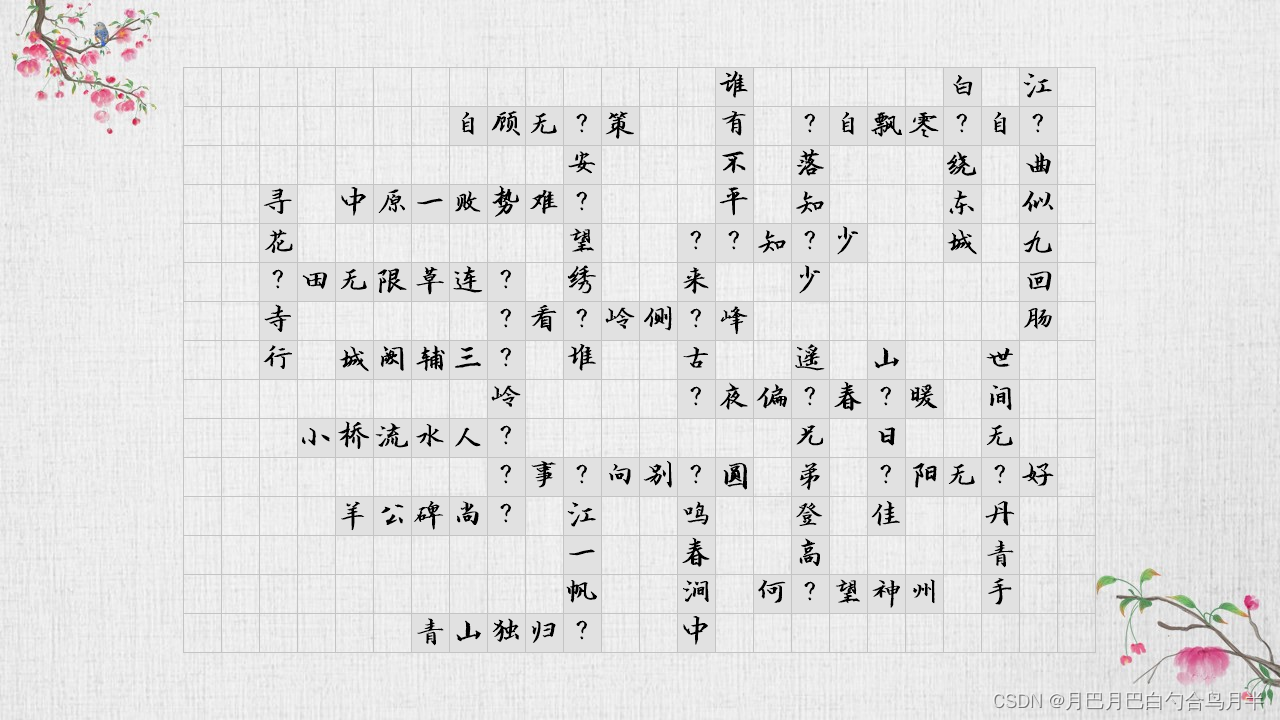 谁 白 江
自顾无?策 有 ?自飘零?自?
安 不 落 绕 曲
寻 中原一败势难? 平 知 东 似
花 望 ??知?少 城 九
?田无限草连? 绣 来 少 回
寺 ?看?岭侧?峰 肠
行 城阙辅三? 堆 古 遥 山 世
岭 ?夜偏?春?暖 间
小桥流水人? 兄 日 无
?事?向别?圆 弟 ?阳无?好
羊公碑尚? 江 鸣 登 佳 丹
一 春 高 青
帆 涧 何?望神州 手
青山独归? 中
CSDN @月巴月巴白勺合鸟月半